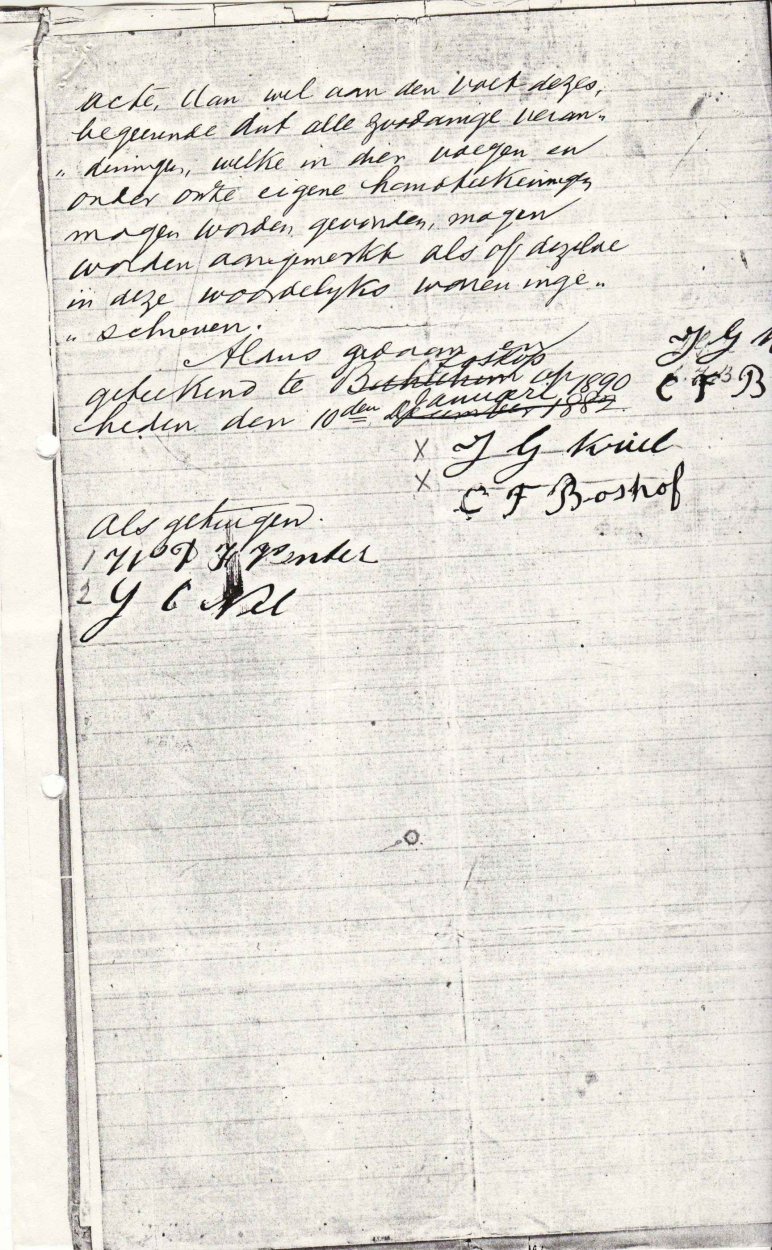 acte, dan wel aan den voet dezes,
begeerende dat alle zoodanige veran„
„ deringen, welke in dier voegen en
onder onze eigene handteekeningen
mogen worden gevonden, mogen
worden aangemerkt als of dezelve
in deze woordelyks waren inge„
„ schreven.
Aldus gedaan en
Loskop
geteekend te Bethlehem op
Januari 1890
heden den 10den December 1889.
J G K
C F B
X J G Kriel
X C F Boshof
Als getuigen.
1
2 J C Nel